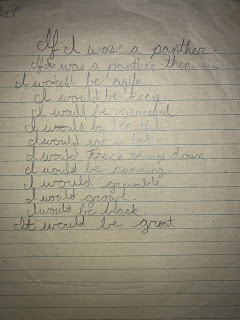 If I wose a panther.
If I was a panther then......
I would be agile
I would be
I would be graceful
I would be beautiful
I would eat a lot
I would track things down
I would be running
I would grumble
I would growl.
I would be black
It would be great